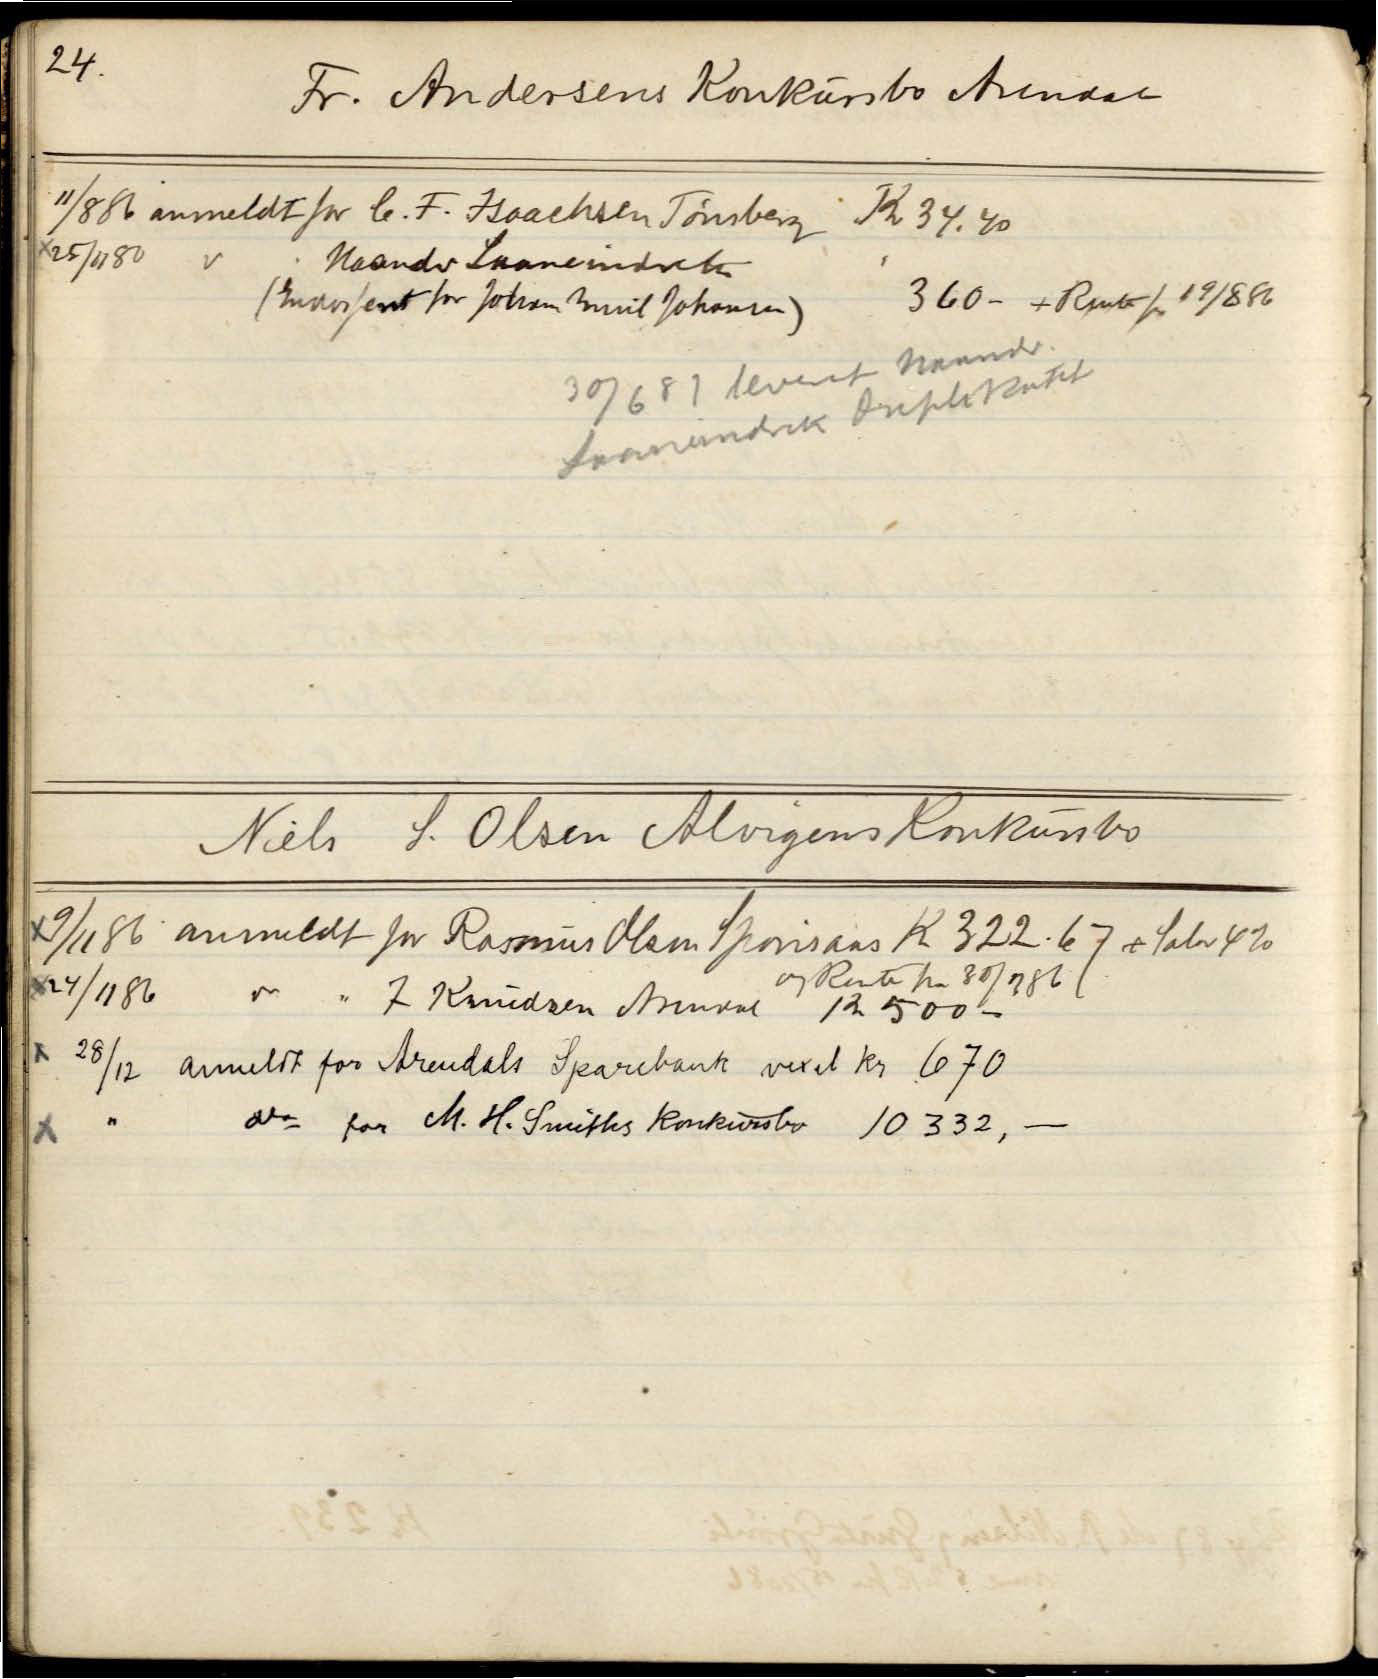 24.
Fr. Andersens Konkursbo Arendal
11/8 86 anmeldt for C. F. Isaachsen Tönsberg Kr 34.40
x 25/11 86 " Haandv Laaneindretn
(Endossent for Johan Emil Johansen) 360- + Rente fra 19/8 86
30/6 87 leveret Haandv.
Laaneindretn Duplikatet
Niels S. Olsen Alvigens Konkursbo
x 9/11 86 anmeldt for Rasmus Olsen Sporsaas Kr 322.67 + Salær 4%
og Rente fra 30/7 86
x 24/11 86 " " Knudsen Arendal Kr 500-
x 28/12 anmeldt for Arendals Sparebank vexel kr 670
x " do for M. H. Smiths konkursbo 10 332,—